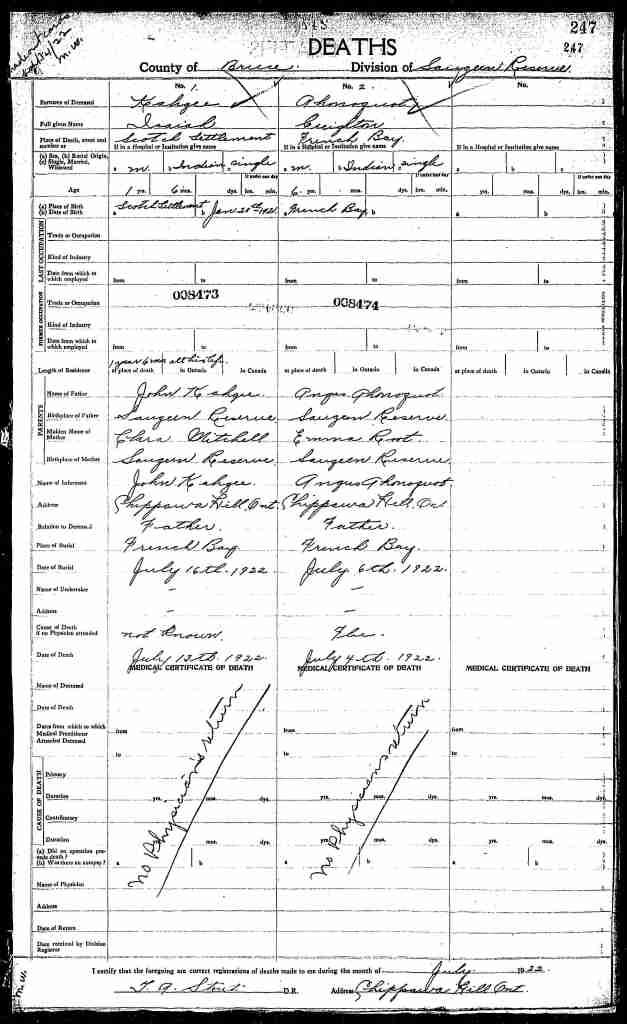 247
DEATHS
247
County of Bruce. Division of Saugeen Reserve.
No. 1. No. 2. No.
Surname of Deceased Kahgee Ahonoquot
Full given Name Isaiah Creighton
Place of Death, street and number or Scotch Settlement French Bay.
If in a Hospital or Institution give name If in a Hospital or Institution give name If in a Hospital or Institution give name
(a) Sex, (b) Racial Origin, (c) Single, Married, Widowed a m. b Indian c single a m. b Indian c single a b c
If under one day If under one day If under one day
Age 1 yrs. 6 mos. dys. hrs. min. 6 yrs. mos. dys. hrs. min. yrs. mos. dys. hrs. min.
(a) Place of Birth (b) Date of Birth a Scotch Settlement b Jan 20th 1921 a French Bay b a b
LAST OCCUPATION
Trade or Occupation
Kind of Industry
Date from which to which employed from to from to from to
FORMER OCCUPATION
Trade or Occupation 008473 008474
Kind of Industry
Date from which to which employed from to from to from to
1 year 6 mos all his life.
Length of Residence at place of death in Ontario in Canada at place of death in Ontario in Canada at place of death in Ontario in Canada
PARENTS
Name of Father John Kahgee Angus Ahonoquot
Birthplace of Father Saugeen Reserve Saugeen Reserve
Maiden Name of Mother Clara Mitchell Emma Root
Birthplace of Mother Saugeen Reserve Saugeen Reserve
Name of Informant John Kahgee Angus Ahonoquot.
Address Chippawa Hill Ont. Chippawa Hill, Ont
Relation to Deceased Father. Father.
Place of Burial French Bay French Bay.
Date of Burial July 16th. 1922 July 6th. 1922.
Name of Undertaker – –
Address – –
Cause of Death if no Physician attended not known. Flu.
Date of Death July 13th. 1922. July 4th. 1922
MEDICAL CERTIFICATE OF DEATH MEDICAL CERTIFICATE OF DEATH MEDICAL CERTIFICATE OF DEATH
Name of Deceased
Date of Death
Dates from which to which Medical Practitioner Attended Deceased from from from
to to to
No Physician's return No Physician's return
CAUSE OF DEATH
Primary
Duration yrs. mos. dys. yrs. mos. dys. yrs. mos. dys.
Contributory
Duration yrs. mos. dys. yrs. mos. dys. yrs. mos. dys.
(a) Did an operation precede death? (b) Was there an autopsy? a b a b a b
Name of Physician
Address
Date of Return
Date received by Division Registrar
I certify that the foregoing are correct registrations of deaths made to me during the month of July 1922.
T. A. Stout D.R. Address Chippawa Hill Ont.
m.w.